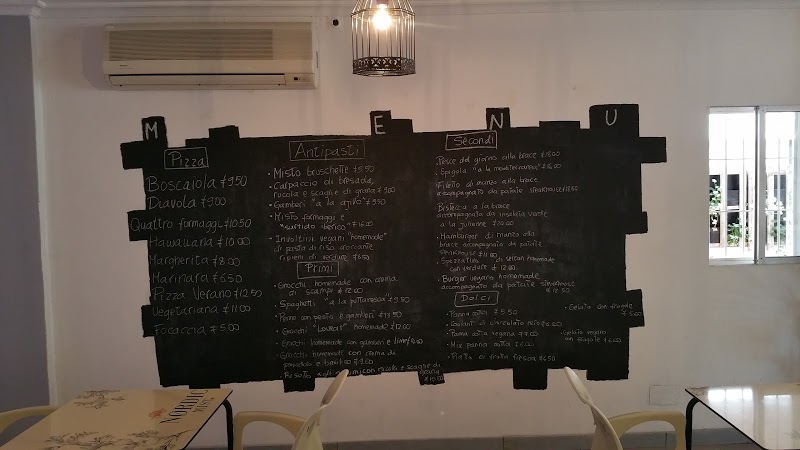 M E N U
Pizza
Boscaiola €9.50
Diavola €9.00
Quattro formaggi €10.50
Hawaiiana €10.00
Margherita €8.00
Marinara €6.50
Pizza Verano €12.50
Vegetariana €11.00
Focaccia €5.00
Antipasti
• Misto bruschette €5.50
• Carpaccio di bresaola,
rucola e scaglie di grana €9.00
• Gamberi "a la ajillo" €9.50
• Misto formaggi e
"surtido iberico" €16.00
• Involtini vegani homemade
di pasta di riso croccante
ripieni di verdure €6.50
Primi
• Gnocchi homemade con crema
di scampi €12.00
• Spaghetti "a la puttanesca" €9.50
• Primo con pesto e gamberi €13.50
• Gnocchi homemade €12.00
• Gnocchi homemade con gamberi e lime
• Gnocchi homemade con crema di
pomodoro e basilico
• Risotto con rucola e scaglie di
grana
Secondi
Pesce del giorno alla brace €18.00
• Spigola "a la mediterranea"
Filetto di manzo alla brace
accompagnato da patate steakhouse
Bistecca a la brace
accompagnata da insalata verde
a la julienne €20.00
• Hamburger di manzo alla
brace accompagnato da patate
steakhouse €11.00
• Spezzatino di seitan homemade
con verdure € 12.00
• Burger vegano homemade
accompagnato da patate steakhouse
€12.50
Dolci
• Panna cotta €5.50
• Coulant di cioccolato €6.00
• Panna cotta vegana €7.00
• Mix panna cotta €6.00
• Piatto di frutta fresca €6.50
• Gelato con fragole
€5.00
• Gelato vegano
con fragole €6.00
NORDIC